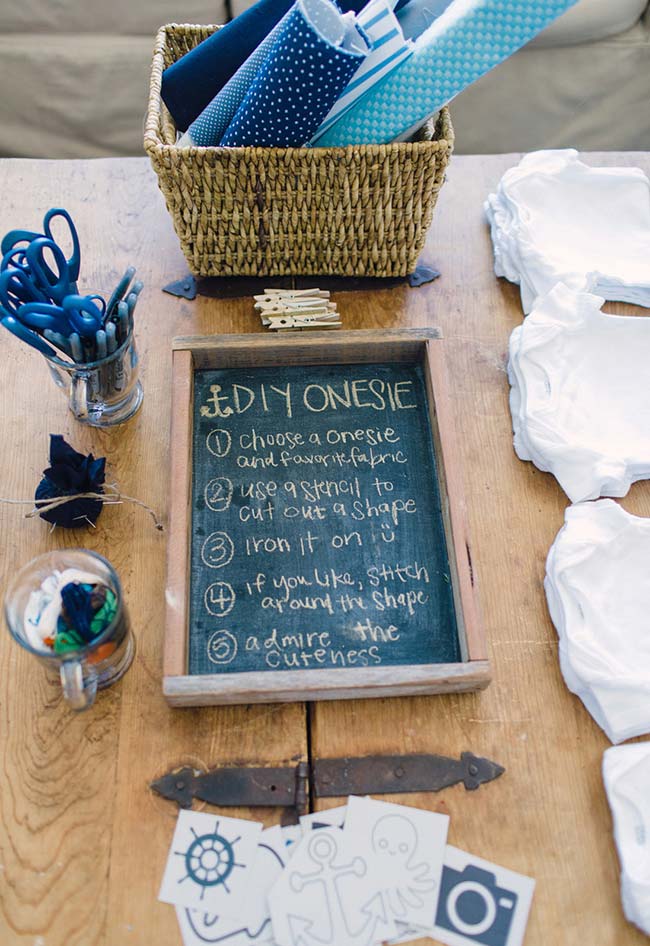 DIY ONESIE
1 choose a onesie
and favorite fabric
2 use a stencil to
cut out a shape
3 iron it on
4 if you like, stitch
around the shape
5 admire the
cuteness